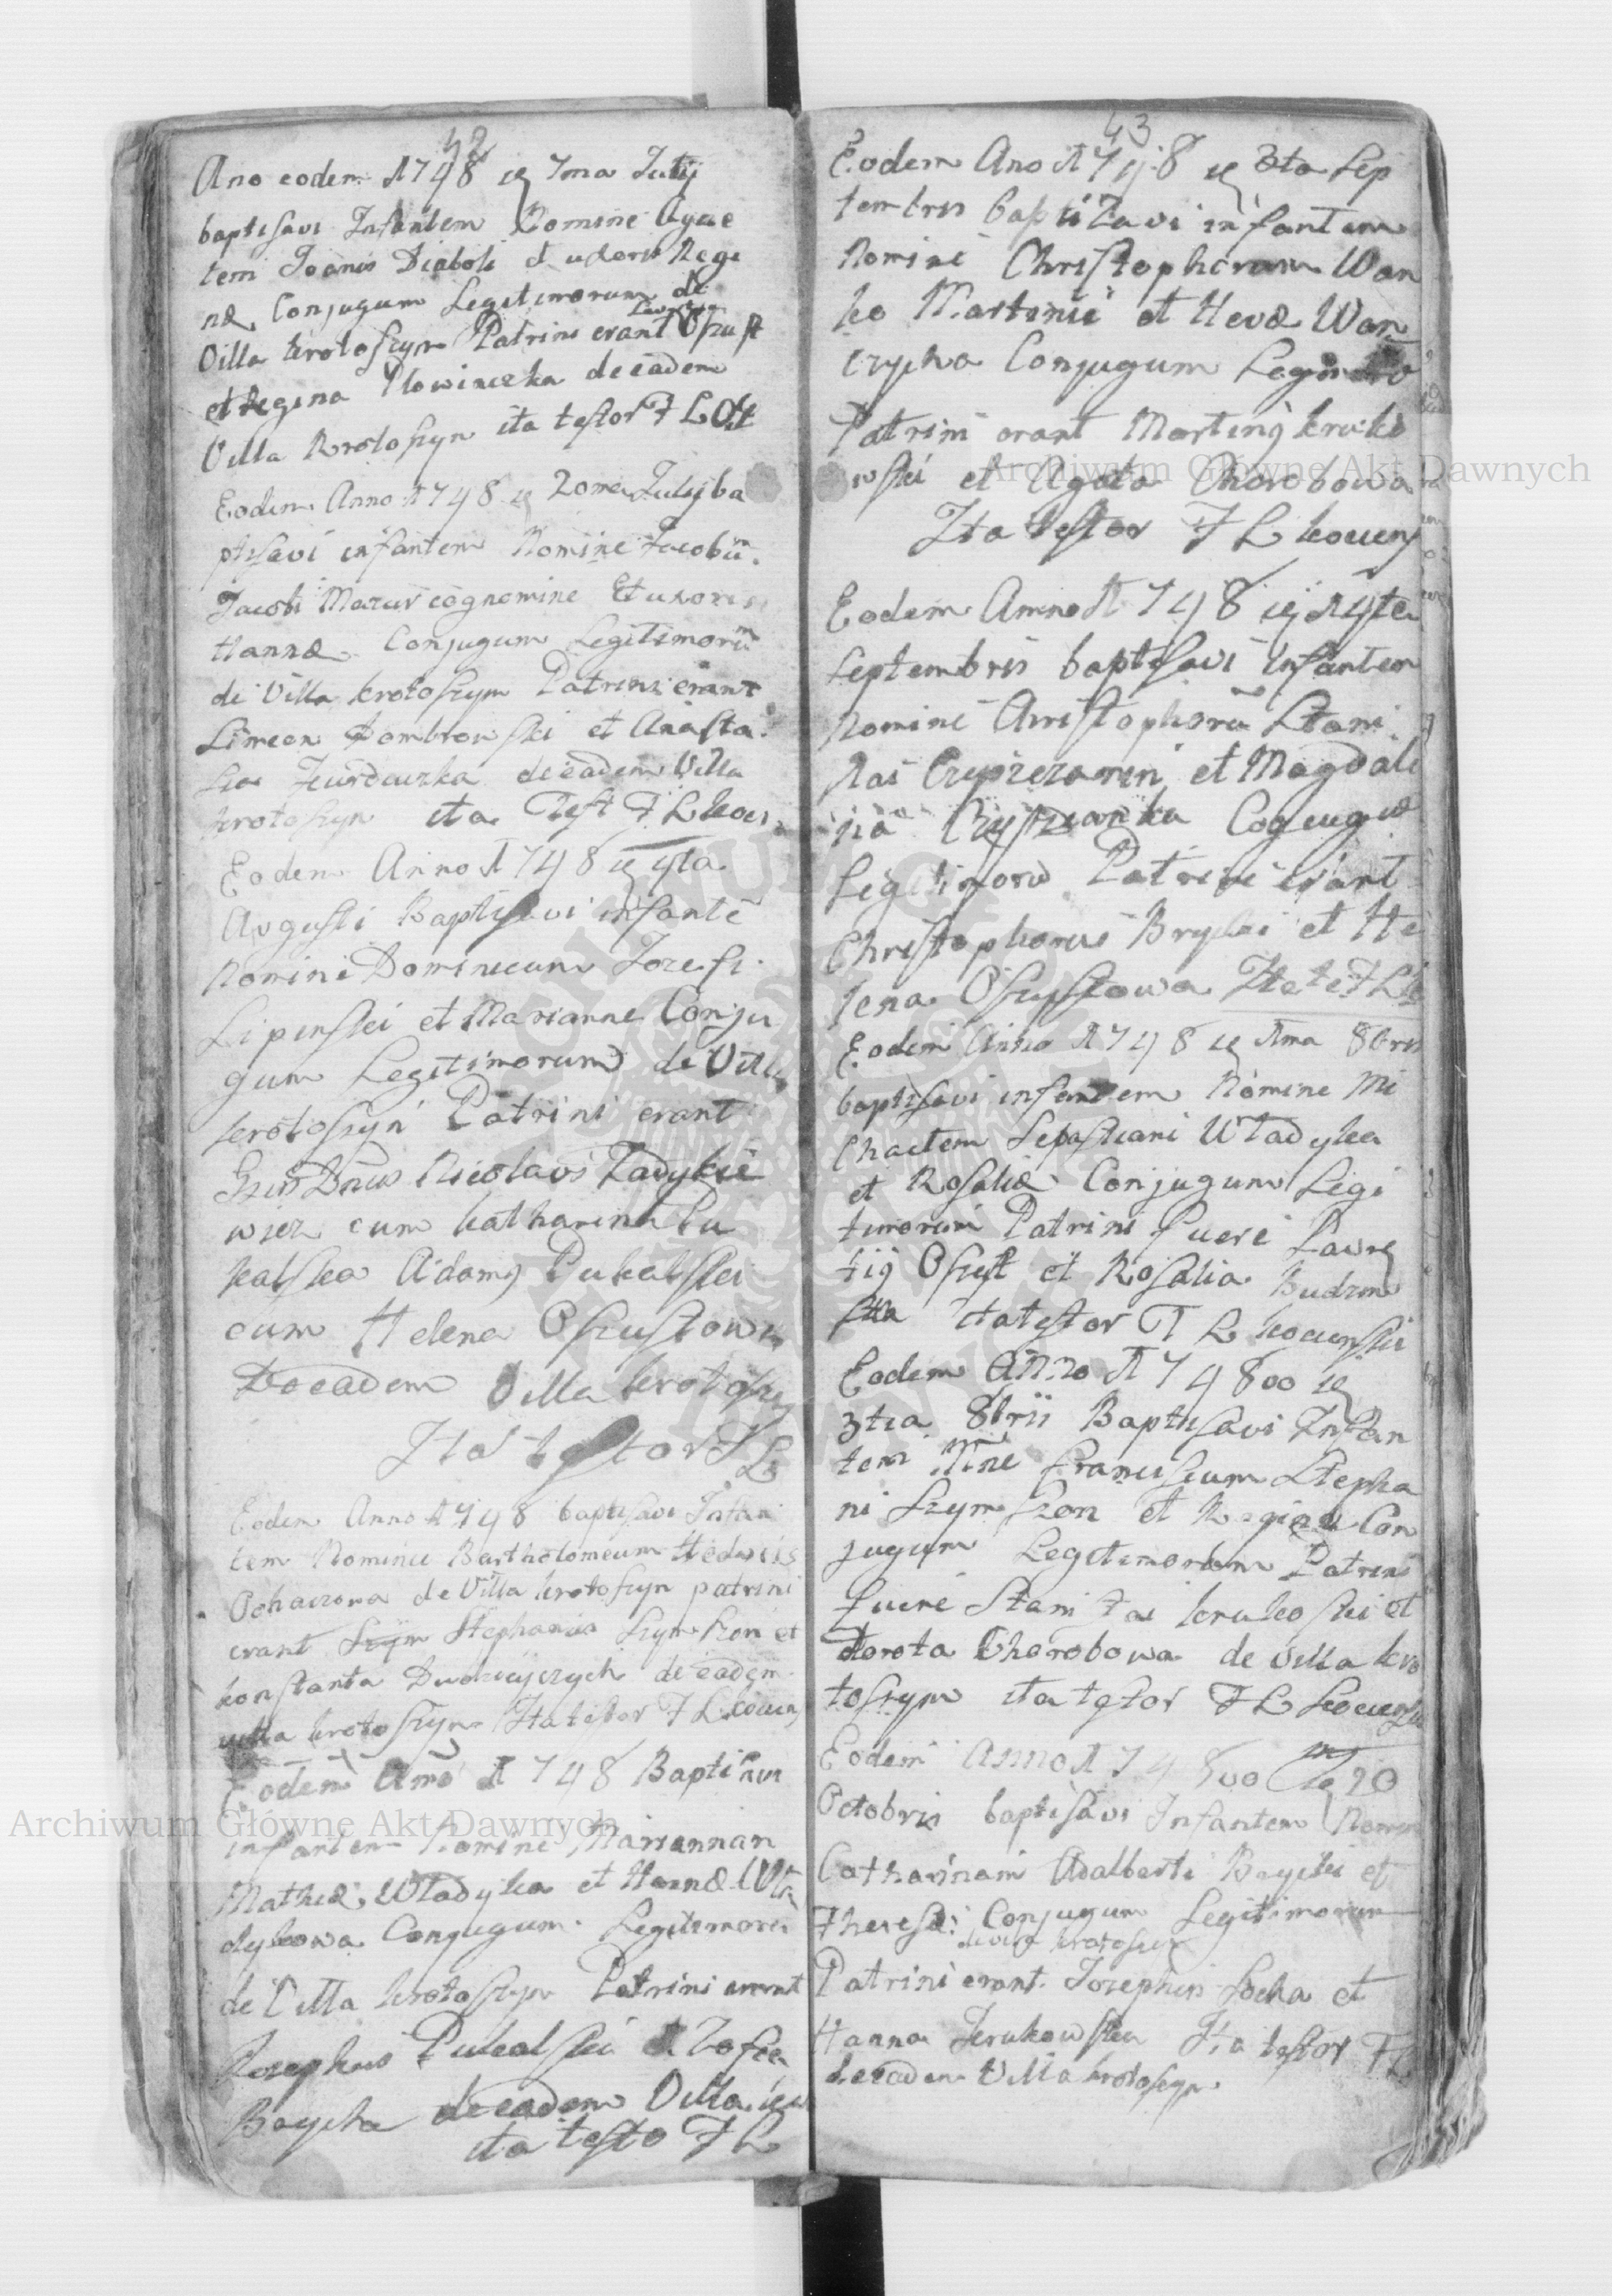 42
Ano eodem 1748 ie 7ma Julij
baptisavi Infantem Nomine Agne
tem Joanis Diaboli et uxoris Regi
næ Conjugum Legitimorum de
Villa krotoszyn Patrini erant Oszust
et Regina Plowinczka de eadem
Villa Krotoszyn ita testor F L
Eodem Anno 1748 ie 20ma Julij ba
ptisavi infantem Nomine Jacobū
Jacobi Mazur cognomine Et uxoris
Hannæ Conjugum Legitimorū
de Villa krotoszyn Patrini erant
Simeon Dombrowski et Anasta
sia de eadem Villa
krotoszyn ita Test F L
Eodem Anno 1748 ie 4ta
Augusti Baptisavi infantē
Nomini Dominicum Jozefi
Lipinski et Marianne Conju
gum Legitimorum de Villa
krotoszyn Patrini erant
Nicolaus Radykie
wicz cum katharina Pu
kalska Adamus Pukalski
cum Helena Oszustowa
De eadem Villa krotoszy
Ita testor F L
Eodem Anno 1748 baptisavi Infan
tem Nomine Bartholomeum Hedwis
de Villa krotoszyn patrini
erant Szym Stephanus Szymszon et
konstanta de eadem
villa krotoszyn Ita testor F L
Eodem Anno 1748 Baptisavi
infantem Nomine Mariannan
Mathiæ Wladyka et Hannæ Wla
dykowa Conjugum Legitimorū
de Villa krotoszyn Patrini erant
Jozephus Pukalski et Zofia
Baycka de eadem Villa
ita testo F L
43
Eodem Ano 1748 ie 8ta Sep
tembris baptizavi infantem
Nomine Christophorum Wan
ko Martinii et Hevæ Wan
czycha Conjugum Legitimo
Patrini erant Martinus kruko
wski et Agata Chorobowa
Ita testor F L
Eodem Anno 1748 ie 14ta
Septembris baptisavi infantem
Nomine Christophorū Stani
slai et Magdale
na Cojugū
Legitimorū Patrini erant
Christophorus et He
lena Oszustowa Ita te F L
Eodem Anno 1748 ie 1ma 8bris
baptisavi infantem Nomine Mi
chaelem Sebastiani Wladyka
et Rosaliæ Conjugum Legi
timorum Patrini fuere Laure
tius Oszust et Rosalia
ita testor F L
Eodem Anno 174800 ie
3tia 8bris Baptisavi Infan
tem Nne Franciscum Stepha
ni Szymszon et Reginæ Con
jugum Legitimorum Patrini
fuere Stanislai krukoski et
dorota Chorobowa de villa kro
toszyn ita testor F L
Eodem Anno 174800 ie 20
Octobris baptisavi Infantem Nomin
Catharinam Adalberti Baycki et
Theresæ Conjugum Legitimorum
de villa krotoszyn
Patrini erant Jozephus Socha et
Hanna krukowska Ita testor F L
de eadem Villa krotoszyn
Archiwum Główne Akt Dawnych
Archiwum Główne Akt Dawnych